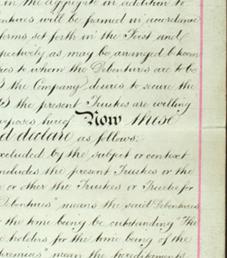 in the aggregate in addition to
entures will be framed in accordance
forms set forth in the First and
pectively as may be arranged between
ies to whom the Debentures are to be
S the Company desires to secure the
S the present Trustees are willing
urposes hereof Now this
d declare as follows:
xcluded by the subject or context
includes the present Trustees or the
e or other the Trustees or Trustee for
Debentures" means the said Debentures
the time being be outstanding "The
e holders for the time being of the
remises" mean the hereditaments